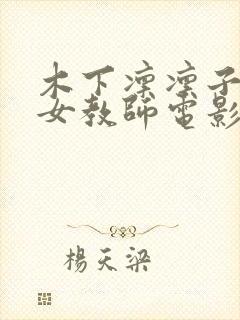 木下凜凜子
女教師電影
楊天梁